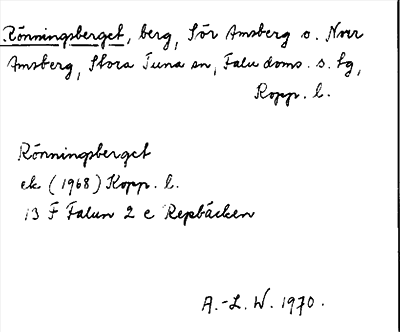 Rönningsberget, berg, Sör Amsberg o. Norr
Amsberg, Stora Tuna sn, Falu doms. s. tg,
Kopp. l.
Rönningsberget
ek (1968) Kopp. l.
13 F Falun 2 c Repbäcken
A.-L. W. 1970.